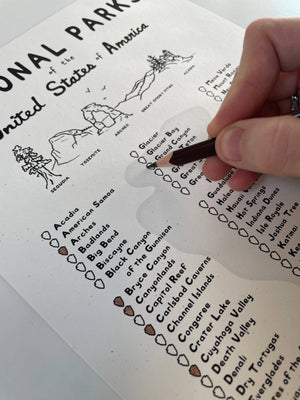 ONAL PARKS
of the
United States of America
SEQUOIA
YOSEMITE
ARCHES
GREAT SMOKY MTNS
ACADIA
Acadia
American Samoa
Arches
Badlands
Big Bend
Biscayne
Black Canyon
of the Gunnison
Bryce Canyon
Canyonlands
Capitol Reef
Carlsbad Caverns
Channel Islands
Congaree
Crater Lake
Cuyahoga Valley
Death Valley
Denali
Dry Tortugas
Everglades
Glacier
Glacier Bay
Grand Canyon
Teton
Great
Great
Guadalupe
Haleakala
Hawaii
Hot Springs
Indiana Dunes
Isle Royale
Joshua Tree
Katmai
Kenai
Mesa Verde
Mount Rai